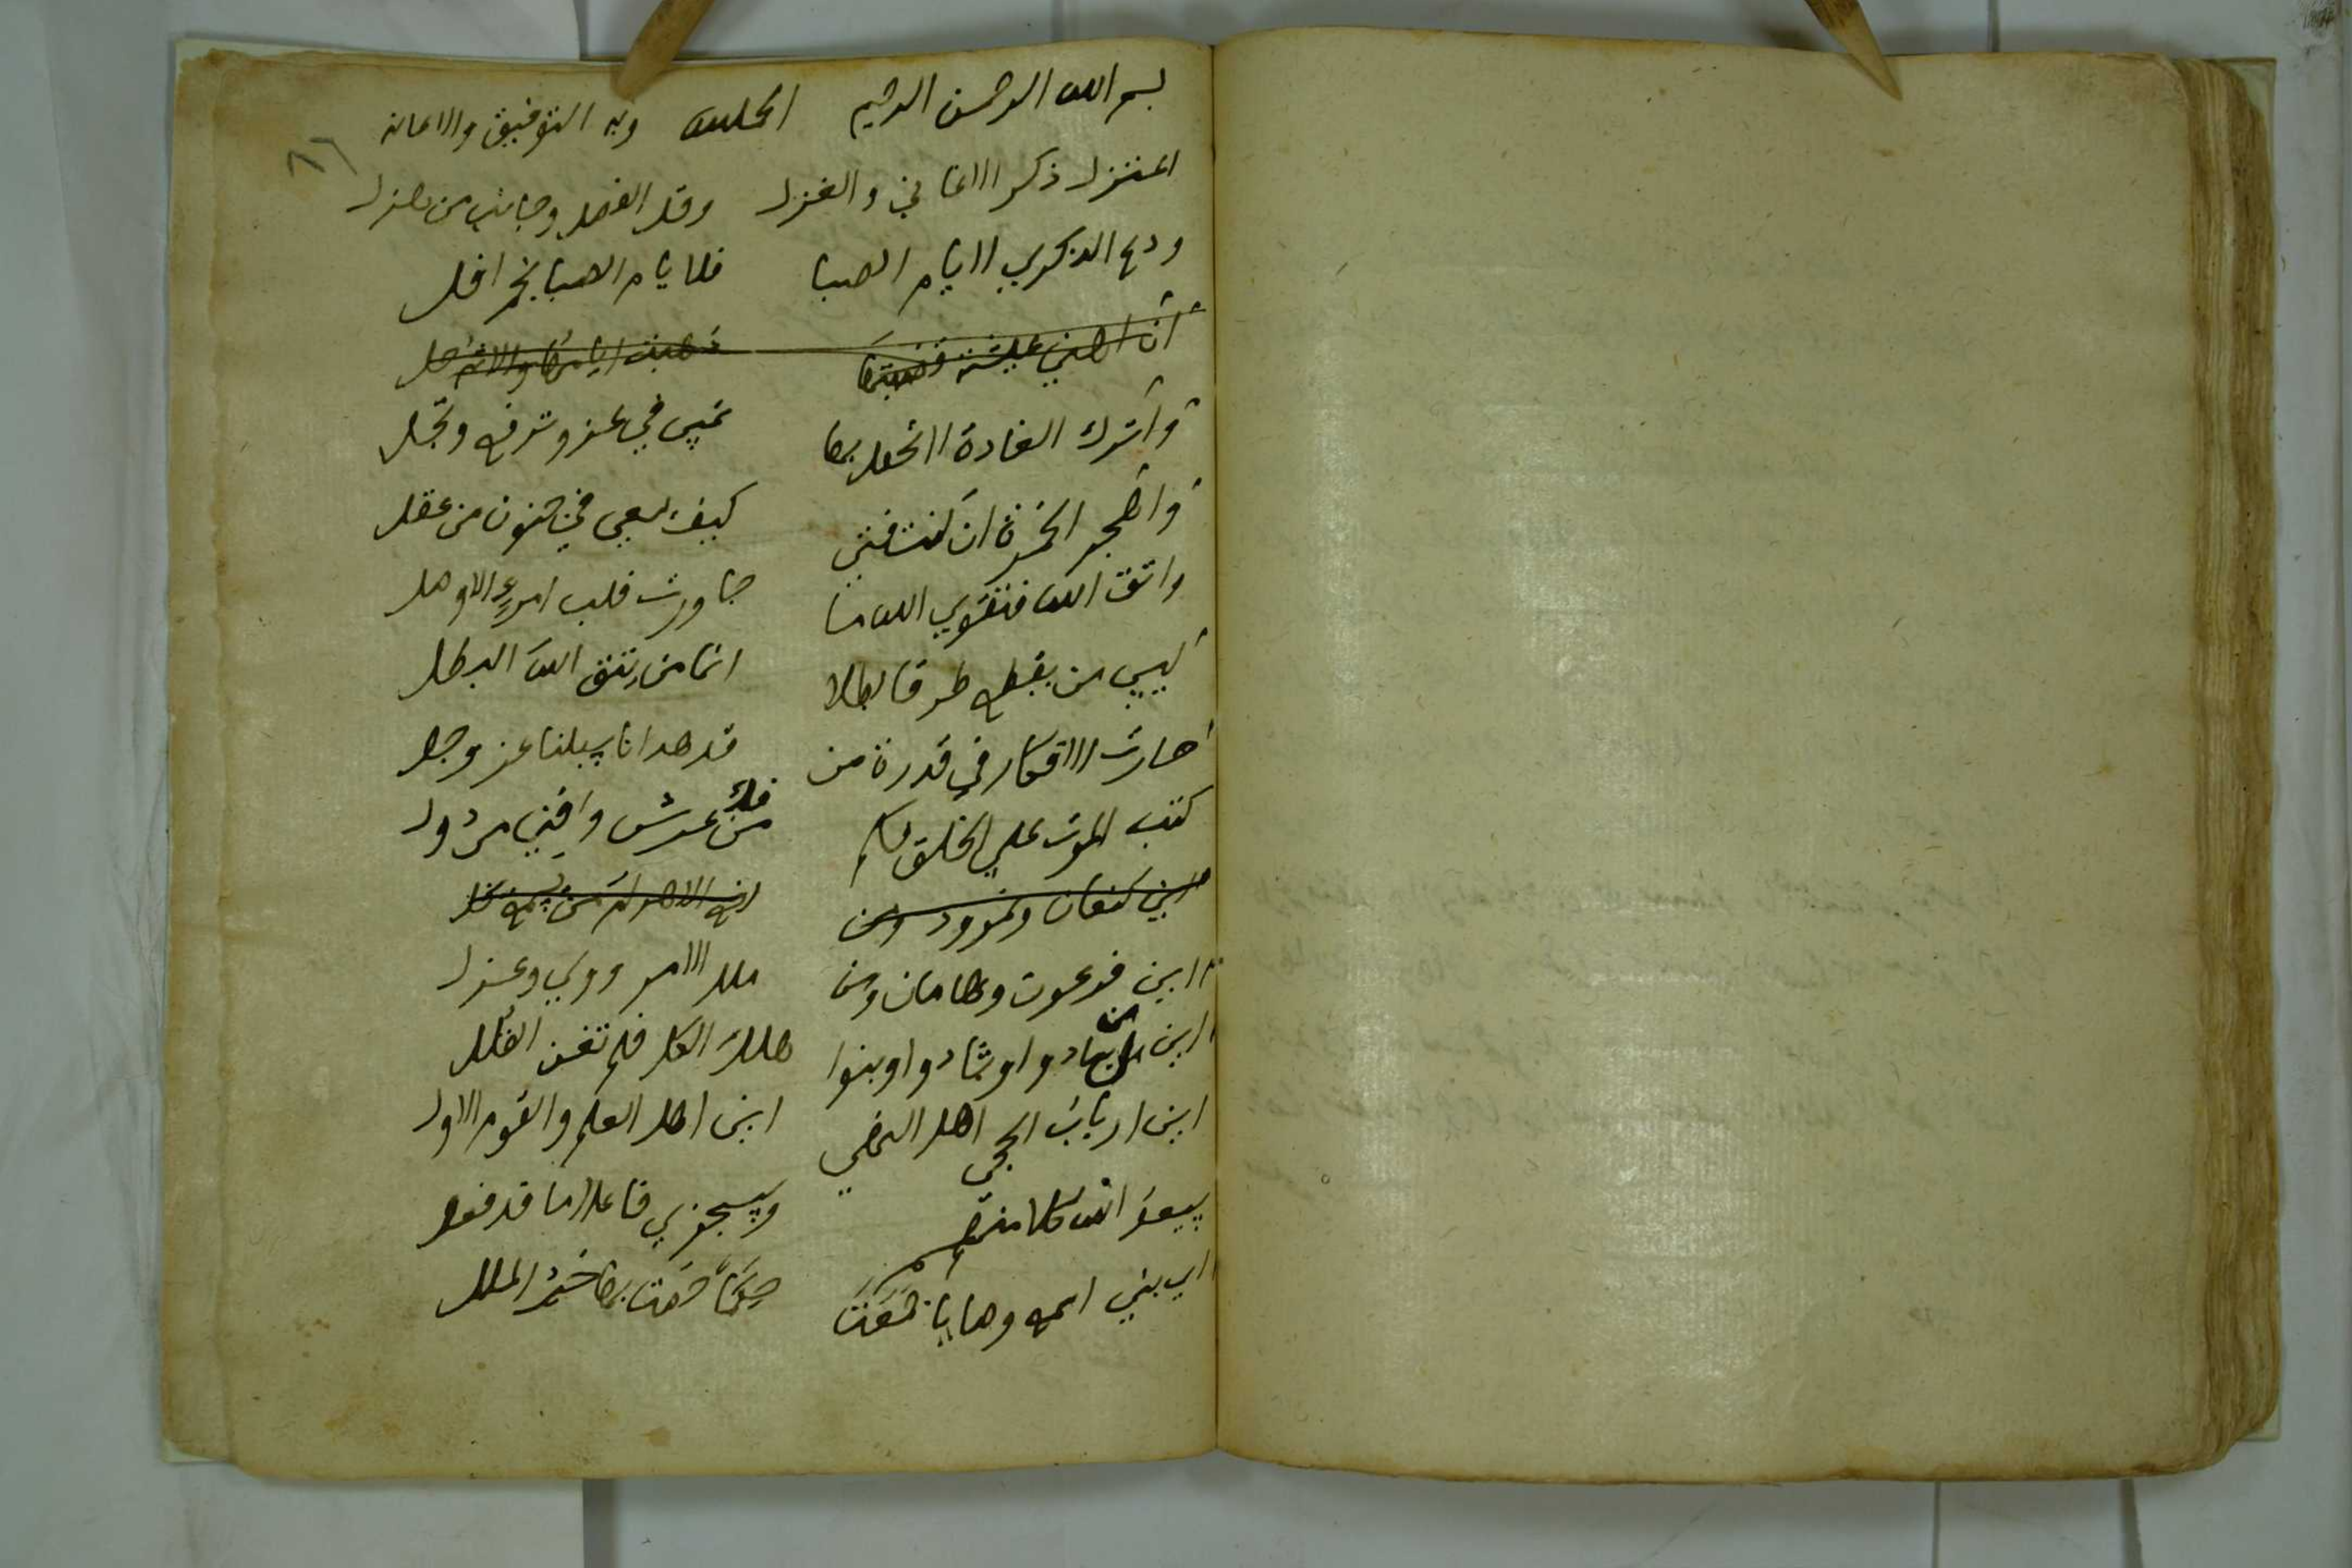 بسم الله الرحمن الرحيم الحمد لله وبه التوفيق والاعانه
٨٦
اعتزل ذكر الاغاني والغزل وقل الفصل وجانب من هزل
ودع الذكري لايام الصبا فلايام الصبا نجم افل
ان اهني عيشة قضيتها ذهبت ايامها والاثم حل
واترك الغادة لا تحفل بها تمسي في عز وترفع وتجل
واهجر الخمرة ان كنت فتي كيف يسعي في جنون من عقل
واتق الله فتقوي الله ما جاورت قلب امرءٍ الا وصل
ليس من يقطع طرقا بطلا انما من يتق الله البطل
حارت الافكار في قدرة من قد هدانا سبلنا عز وجل
كتب الموت علي الخلق فكم فل من عرش وافني من دول
اين كنعان ونمرود ومن رفع الاهرام من يسمع يخل
اين فرعون وهامان ومن ملك الامر وولي وعزل
اين من سادوا وشادوا وبنوا هلك الكل فلم تغن القلل
اين ارباب الحجي اهل النهي اين اهل العلم والقوم الاول
سيعيد الله كلا منهم وسيجزي فاعلا ما قد فعل
اي بني اسمع وصايا جمعت حكما خصت بها خير الملل